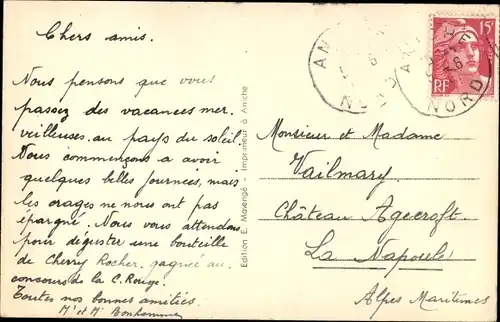 Chers amis.
Nous pensons que vous
passez des vacances mer.
veilleuses. au pays du soleil.
Nous commençons a avoir
quelques belles journées, mais
les orages ne nous ont pas
épargné. Nous vous attendons
pour déguster une bouteille
de Cherry Rocher, gagnée au
concours de la C. Rouge.
Toutes nos bonnes amitiés.
Mr et Me Bonhomme
Edition E. Malengé - Imprimeur à Aniche
15F
RF
NORD
Monsieur et Madame
Vailmary
Château Agecroft.
La Napoule
Alpes Maritimes